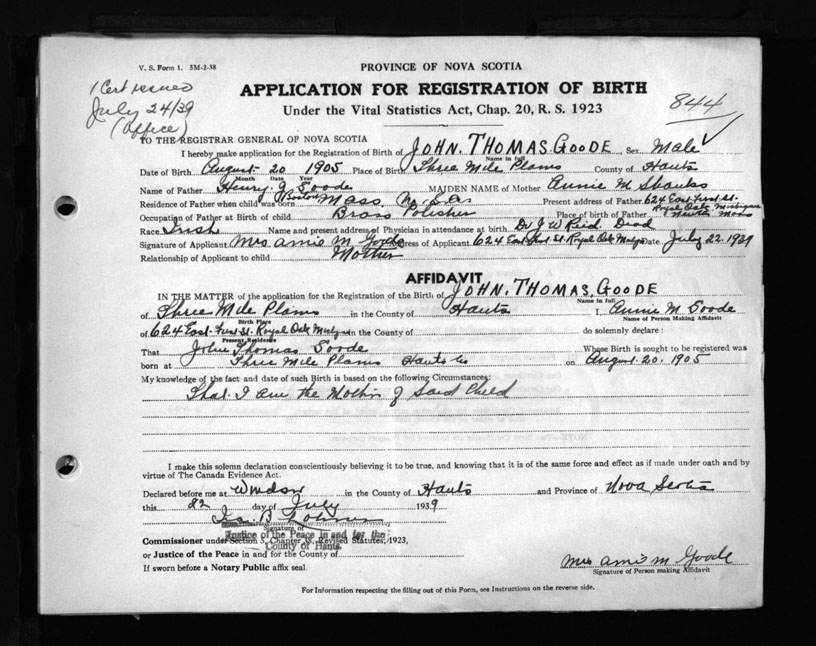 V. S. Form 1. 5M-2-38
PROVINCE OF NOVA SCOTIA
1 Cert issued
July 24/39
(Office)
APPLICATION FOR REGISTRATION OF BIRTH
Under the Vital Statistics Act, Chap. 20, R. S. 1923
844
TO THE REGISTRAR GENERAL OF NOVA SCOTIA
I hereby make application for the Registration of Birth of JOHN. THOMAS. GOODE Sex Male
Name in full
Date of Birth August 20 1905 Place of Birth Three Mile Plains County of Hants
Month Date Year
Name of Father Henry J Goode MAIDEN NAME of Mother Annie M Shanks
Residence of Father when child was born Boston Mass. Present address of Father 624 East First St. Royal Oak Michigan
Occupation of Father at Birth of child Brass Polisher Place of birth of Father Mass
Race Irish Name and present address of Physician in attendance at birth Dr J W Reid. Dead
Signature of Applicant Mrs annie M Goode Address of Applicant 624 East First St. Royal Oak Date July 22. 1939
Relationship of Applicant to child Mother
AFFIDAVIT
IN THE MATTER of the application for the Registration of the Birth of JOHN. THOMAS. GOODE
Name in full
of Three Mile Plains in the County of Hants I, Annie M Goode
Birth Place Name of Person Making Affidavit
of 624 East. First St. Royal Oak in the County of do solemnly declare :
Present Residence
That John Thomas Goode Whose Birth is sought to be registered was
born at Three Mile Plains Hants Co on August 20. 1905
My knowledge of the fact and date of such Birth is based on the following Circumstances:
That. I am the Mother of Said Child
I make this solemn declaration conscientiously believing it to be true, and knowing that it is of the same force and effect as if made under oath and by
virtue of The Canada Evidence Act.
Declared before me at Windsor in the County of Hants and Province of Nova Scotia
this 22 day of July 1939
Signature of
Justice of the Peace in and for the
Commissioner under Section 5, Chapter 38, Revised Statutes, 1923,
County of Hants.
or Justice of the Peace in and for the County of
Mrs annie M Goode
If sworn before a Notary Public affix seal.
Signature of Person making Affidavit
For Information respecting the filling out of this Form, see Instructions on the reverse side.